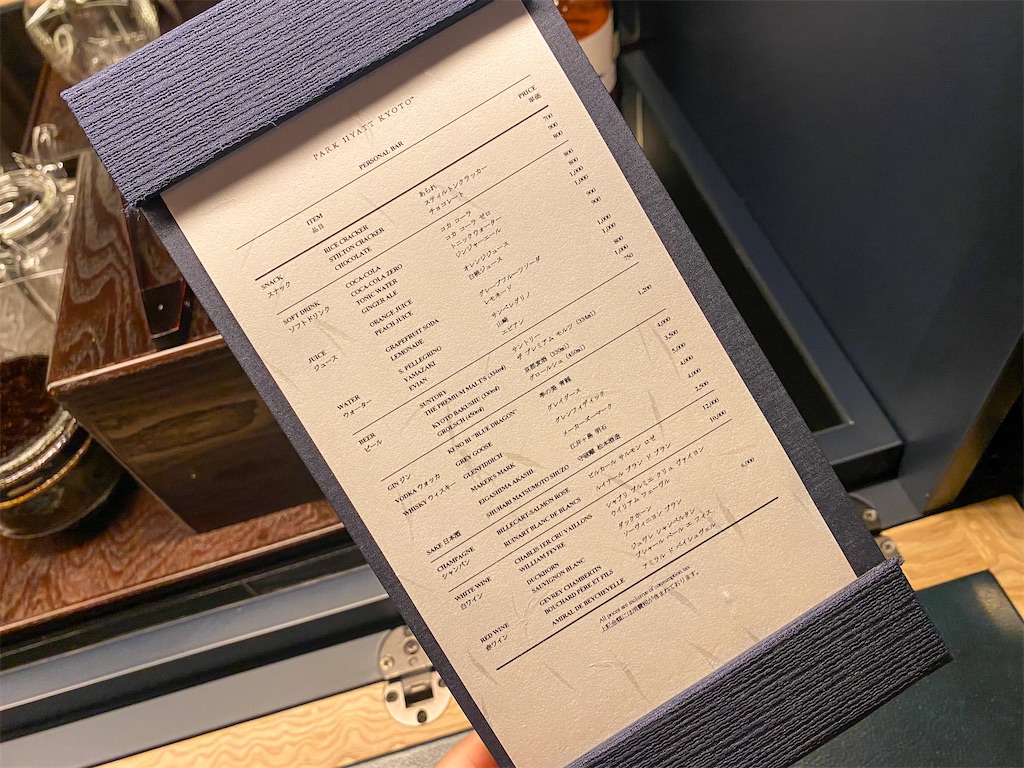 PARK HYATT KYOTO™
PERSONAL BAR
ITEM PRICE
品目 単価
SNACK RICE CRACKER あられ 700
スナック STILTON CRACKER スティルトンクラッカー 900
CHOCOLATE チョコレート 800
SOFT DRINK COCA-COLA コカ コーラ 800
ソフトドリンク COCA-COLA ZERO コカ コーラ ゼロ 800
TONIC WATER トニックウォーター 1,000
GINGER ALE ジンジャーエール 1,000
JUICE ORANGE JUICE オレンジジュース 900
ジュース PEACH JUICE 白桃ジュース 900
GRAPEFRUIT SODA グレープフルーツソーダ 1,000
LEMONADE レモネード 1,000
WATER S. PELLEGRINO サンペレグリノ 800
ウォーター YAMAZAKI 山崎 1,000
EVIAN エビアン 750
BEER SUNTORY サントリー
ビール THE PREMIUM MALT'S (334ml) ザ プレミアム モルツ (334ml) 1,200
KYOTO BAKUSHU (330ml) 京都麦酒 (330ml)
GROLSCH (450ml) グロールシュ (450ml)
GIN ジン KI NO BI "BLUE DRAGON" 季の美 青龍 4,000
VODKA ウォッカ GREY GOOSE グレイグース 3,500
WHISKY ウィスキー GLENFIDDICH グレンフィディック 5,000
MAKER'S MARK メーカーズマーク 4,000
SAKE 日本酒 EIGASHIMA AKASHI 明石 4,000
SHUHARI MATSUMOTO SHUZO 守破離 松本酒造 2,500
CHAMPAGNE BILLECART-SALMON ROSE ビルカール サルモン ロゼ 12,000
シャンパン RUINART BLANC DE BLANCS ルイナール ブラン ド ブラン 10,000
WHITE WINE CHABLIS 1ER CRU VAILLONS シャブリ プルミエ クリュ ヴァイヨン
白ワイン WILLIAM FEVRE ウイリアム フェーヴル
DUCKHORN ダックホーン 6,000
SAUVIGNON BLANC ソーヴィニヨン ブラン
RED WINE GEVREY CHAMBERTIN ジュヴレ シャンベルタン
赤ワイン BOUCHARD PÈRE ET FILS ブシャール ペール エ フィス
AMIRAL DE BEYCHEVELLE アミラル ド ベイシュヴェル
All prices are exclusive of consumption tax.